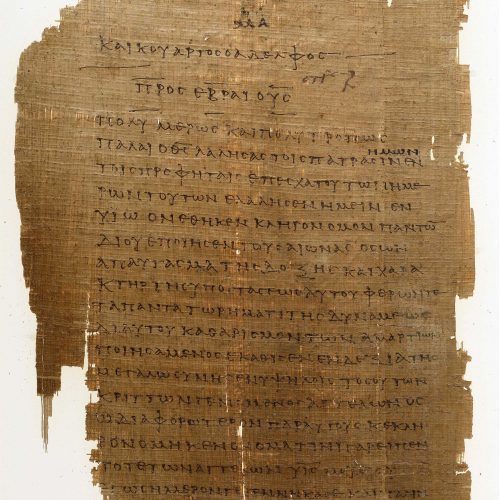 ΚΑΙ ΚΟΥΑΡΤΟΣ Ο ΑΔΕΛΦΟΣ
ΠΡΟΣ ΕΒΡΑΙΟΥΣ
ΠΟΛΥΜΕΡΩΣ ΚΑΙ ΠΟΛΥΤΡΟΠΩΣ
ΗΜΩΝ
ΠΑΛΑΙ Ο ΘΣ ΛΑΛΗΣΑΣ ΤΟΙΣ ΠΑΤΡΑΣΙΝ ΕΝ
ΤΟΙΣ ΠΡΟΦΗΤΑΙΣ ΕΠ ΕΣΧΑΤΟΥ ΤΩΝ ΗΜΕ
ΡΩΝ ΤΟΥΤΩΝ ΕΛΑΛΗΣΕΝ ΗΜΕΙΝ ΕΝ
ΥΙΩ ΟΝ ΕΘΗΚΕΝ ΚΛΗΡΟΝΟΜΟΝ ΠΑΝΤΩ̅
ΔΙ ΟΥ ΕΠΟΙΗΣΕΝ ΤΟΥΣ ΑΙΩΝΑΣ ΟΣ ΩΝ
ΑΠΑΥΓΑΣΜΑ ΤΗΣ ΔΟΞΗΣ ΚΑΙ ΧΑΡΑ
ΚΤΗΡ ΤΗΣ ΥΠΟΣΤΑΣΕΩΣ ΑΥΤΟΥ ΦΕΡΩΝ ΤΕ
ΤΑ ΠΑΝΤΑ ΤΩ ΡΗΜΑΤΙ ΤΗΣ ΔΥΝΑΜΕΩΣ
ΔΙ ΑΥΤΟΥ ΚΑΘΑΡΙΣΜΟΝ ΤΩΝ ΑΜΑΡΤΙΩΝ
ΠΟΙΗΣΑΜΕΝΟΣ ΕΚΑΘΙΣΕΝ ΕΝ ΔΕΞΙΑ ΤΗΣ
ΜΕΓΑΛΩΣΥΝΗΣ ΕΝ ΥΨΗΛΟΙΣ ΤΟΣΟΥΤΩ
ΚΡΙΤΤΩΝ ΓΕΝΟΜΕΝΟΣ ΑΓΓΕΛΩΝ ΟΣ
Ω ΔΙΑΦΟΡΩΤΕΡΟΝ ΠΑΡ ΑΥΤΟΥΣ ΚΕΚΛΗ
ΡΟΝΟΜΗΚΕΝ ΟΝΟΜΑ ΤΙΝΙ ΓΑΡ ΕΙΠΕΝ
ΠΟΤΕ ΤΩΝ ΑΓΓΕΛΩΝ ΥΙΟΣ